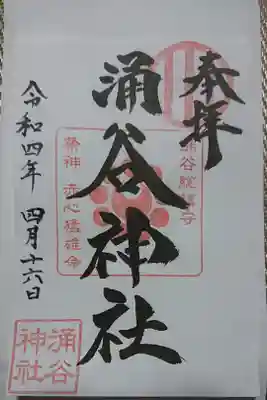 奉拝
涌谷神社
令和四年 四月十六日
涌谷総鎮守
祭神 赤心猛雄命
涌谷
神社